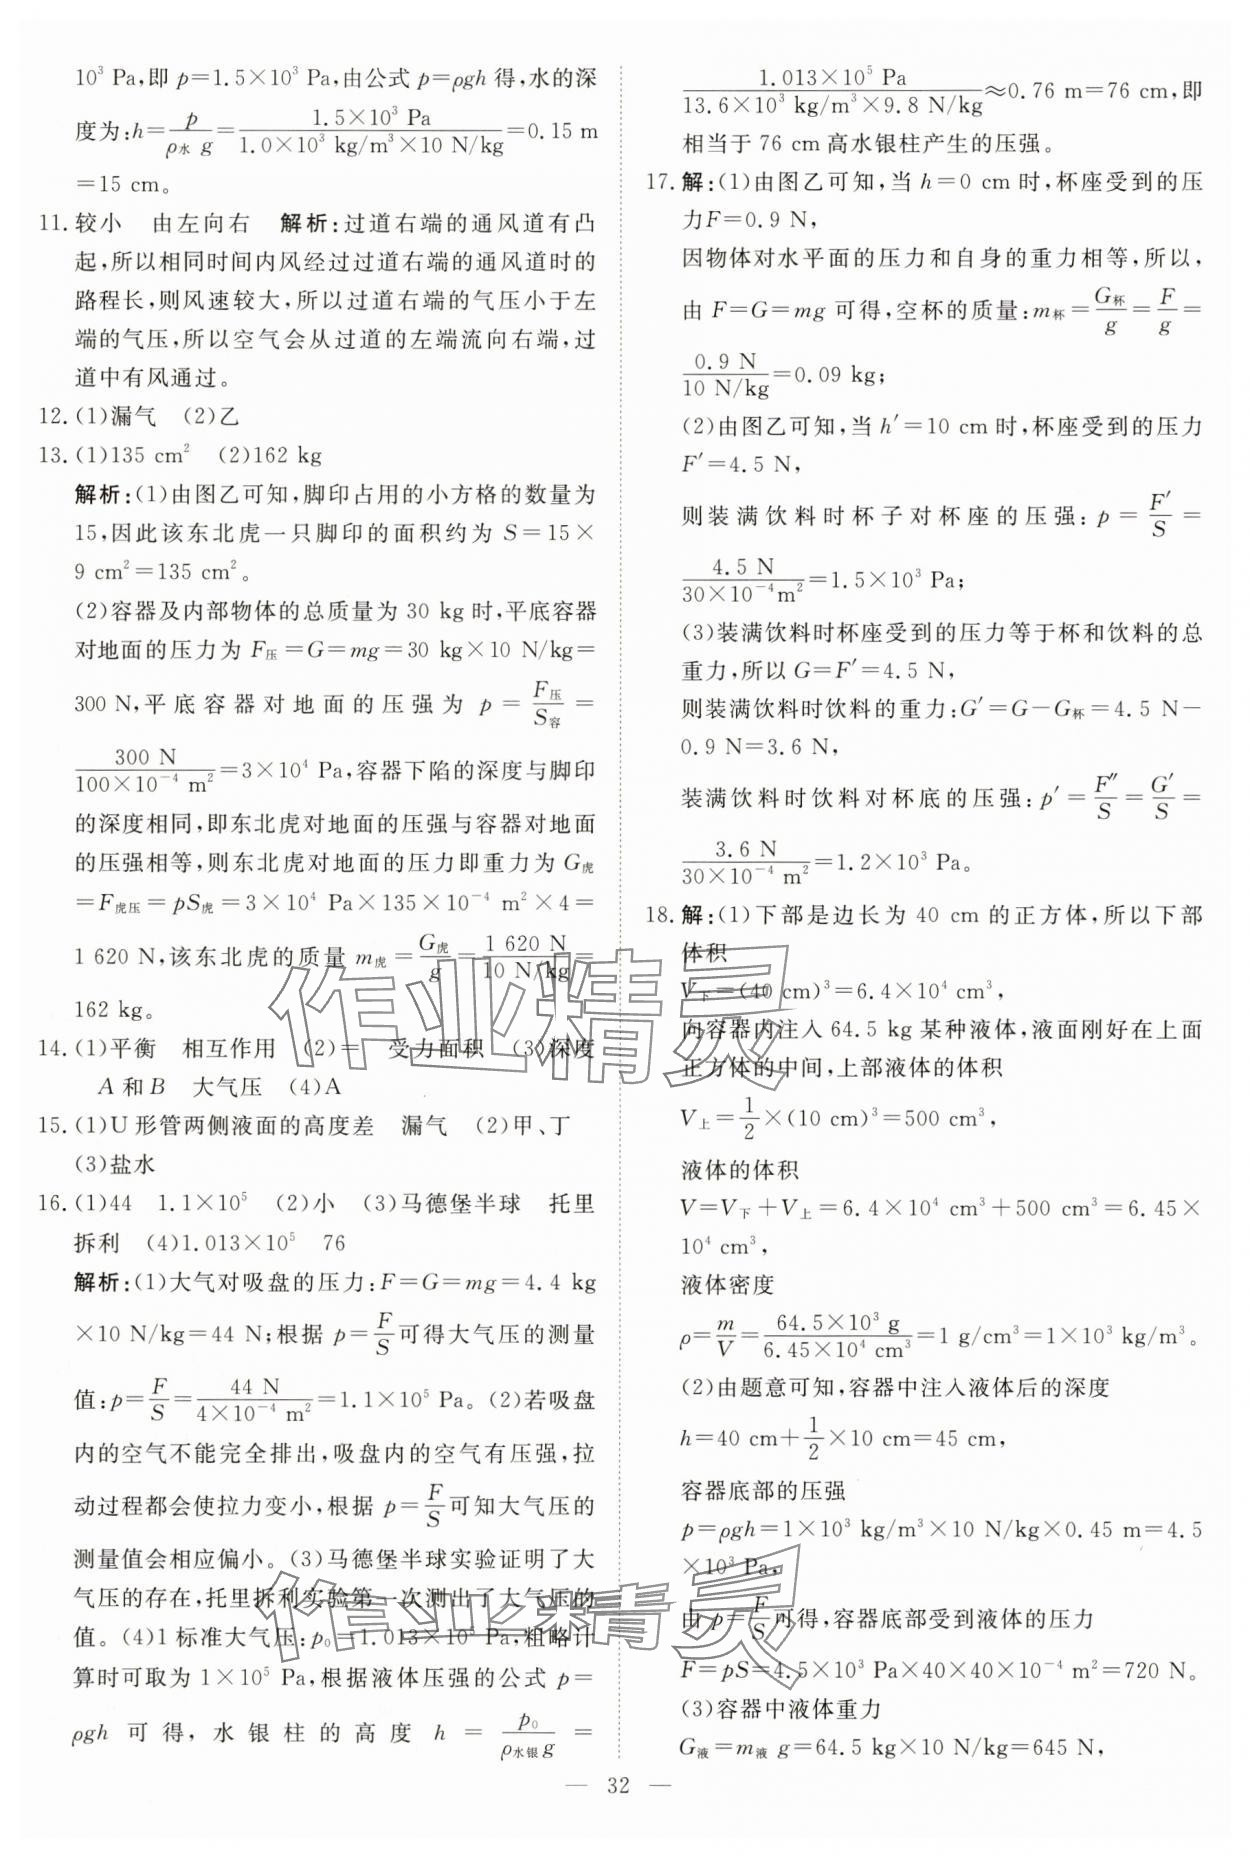 10³ Pa,即 p=1.5×10³ Pa,由公式 p=ρgh 得,水的深
度为:h=p/(ρ水 g)=1.5×10³ Pa/(1.0×10³ kg/m³×10 N/kg)=0.15 m
=15 cm。
11. 较小 由左向右 解析:过道右端的通风道有凸
起,所以相同时间内风经过过道右端的通风道时的
路程长,则风速较大,所以过道右端的气压小于左
端的气压,所以空气会从过道的左端流向右端,过
道中有风通过。
12. (1)漏气 (2)乙
13. (1)135 cm² (2)162 kg
解析:(1)由图乙可知,脚印占用的小方格的数量为
15,因此该东北虎一只脚印的面积约为 S=15×
9 cm²=135 cm²。
(2)容器及内部物体的总质量为 30 kg 时,平底容器
对地面的压力为 F压=G=mg=30 kg×10 N/kg=
300 N,平底容器对地面的压强为 p=F压/S容=
300 N/(100×10⁻⁴ m²)=3×10⁴ Pa,容器下陷的深度与脚印
的深度相同,即东北虎对地面的压强与容器对地面
的压强相等,则东北虎对地面的压力即重力为 G虎
=F虎压=pS虎=3×10⁴ Pa×135×10⁻⁴ m²×4=
1 620 N,该东北虎的质量 m虎=G虎/g=1 620 N/(10 N/kg)=
162 kg。
14. (1)平衡 相互作用 (2)= 受力面积 (3)深度
A 和 B 大气压 (4)A
15. (1)U 形管两侧液面的高度差 漏气 (2)甲、丁
(3)盐水
16. (1)44 1.1×10⁵ (2)小 (3)马德堡半球 托里
拆利 (4)1.013×10⁵ 76
解析:(1)大气对吸盘的压力:F=G=mg=4.4 kg
×10 N/kg=44 N;根据 p=F/S可得大气压的测量
值:p=F/S=44 N/(4×10⁻⁴ m²)=1.1×10⁵ Pa。(2)若吸盘
内的空气不能完全排出,吸盘内的空气有压强,拉
动过程都会使拉力变小,根据 p=F/S可知大气压的
测量值会相应偏小。(3)马德堡半球实验证明了大
气压的存在,托里拆利实验第一次测出了大气压的
值。(4)1 标准大气压:p₀=1.013×10⁵ Pa,粗略计
算时可取为 1×10⁵ Pa,根据液体压强的公式 p=
ρgh 可得,水银柱的高度 h=p₀/(ρ水银 g)=
1.013×10⁵ Pa/(13.6×10³ kg/m³×9.8 N/kg)≈0.76 m=76 cm,即
相当于 76 cm 高水银柱产生的压强。
17. 解:(1)由图乙可知,当 h=0 cm 时,杯座受到的压
力F=0.9 N,
因物体对水平面的压力和自身的重力相等,所以,
由 F=G=mg 可得,空杯的质量:m杯=G杯/g=F/g=
0.9 N/(10 N/kg)=0.09 kg;
(2)由图乙可知,当 h′=10 cm 时,杯座受到的压力
F′=4.5 N,
则装满饮料时杯子对杯座的压强:p=F′/S=
4.5 N/(30×10⁻⁴ m²)=1.5×10³ Pa;
(3)装满饮料时杯座受到的压力等于杯和饮料的总
重力,所以 G=F′=4.5 N,
则装满饮料时饮料的重力:G′=G-G杯=4.5 N-
0.9 N=3.6 N,
装满饮料时饮料对杯底的压强:p′=F″/S=G′/S=
3.6 N/(30×10⁻⁴ m²)=1.2×10³ Pa。
18. 解:(1)下部是边长为 40 cm 的正方体,所以下部
体积
V下=(40 cm)³=6.4×10⁴ cm³,
向容器内注入 64.5 kg 某种液体,液面刚好在上面
正方体的中间,上部液体的体积
V上=1/2×(10 cm)³=500 cm³,
液体的体积
V=V下+V上=6.4×10⁴ cm³+500 cm³=6.45×
10⁴ cm³,
液体密度
ρ=m/V=64.5×10³ g/(6.45×10⁴ cm³)=1 g/cm³=1×10³ kg/m³。
(2)由题意可知,容器中注入液体后的深度
h=40 cm+1/2×10 cm=45 cm,
容器底部的压强
p=ρgh=1×10³ kg/m³×10 N/kg×0.45 m=4.5
×10³ Pa,
由 p=F/S可得,容器底部受到液体的压力
F=pS=4.5×10³ Pa×40×40×10⁻⁴ m²=720 N。
(3)容器中液体重力
G液=m液 g=64.5 kg×10 N/kg=645 N,
作业精灵
作业精灵
— 32 —